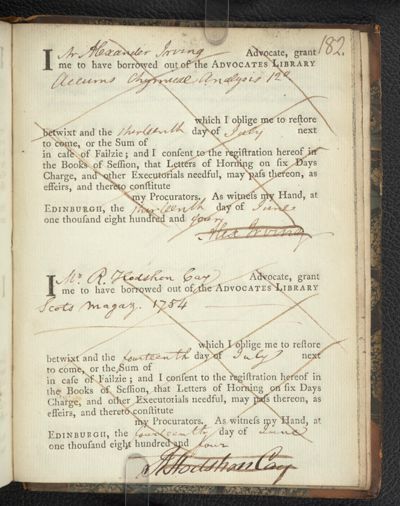 182.
I Mr Alexander Irving Advocate, grant
me to have borrowed out of the ADVOCATES LIBRARY
Accums Chymical Analysis 12o
which I oblige me to reſtore
betwixt and the thirteenth day of July next
to come, or the Sum of
in caſe of Failzie; and I conſent to the regiſtration hereof in
the Books of Seſſion, that Letters of Horning on ſix Days
Charge, and other Executorials needful, may paſs thereon, as
effeirs, and thereto conſtitute
my Procurators. As witneſs my Hand, at
EDINBURGH, the thirteenth day of June
one thouſand eight hundred and four
Alex Irving
I Mr. R. Hodshon Cay Advocate, grant
me to have borrowed out of the ADVOCATES LIBRARY
Scots Magaz. 1754
which I oblige me to reſtore
betwixt and the fourteenth day of July next
to come, or the Sum of
in caſe of Failzie; and I conſent to the regiſtration hereof in
the Books of Seſſion, that Letters of Horning on ſix Days
Charge, and other Executorials needful, may paſs thereon, as
effeirs, and thereto conſtitute
my Procurators. As witneſs my Hand, at
EDINBURGH, the fourteenth day of June
one thouſand eight hundred and four
R Hodshon Cay